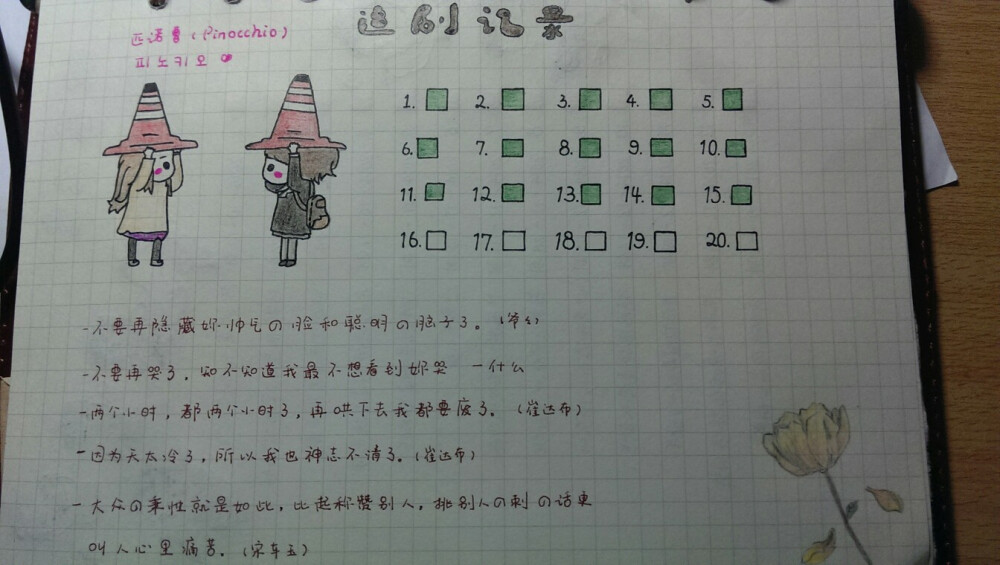 追剧记录
匹诺曹 (Pinocchio)
피노키오
1. 2. 3. 4. 5.
6. 7. 8. 9. 10.
11. 12. 13. 14. 15.
16. 17. 18. 19. 20.
-不要再隐藏妳帅气の脸和聪明の脑子了。(爷爷)
-不要再哭了,知不知道我最不想看到妳哭 -什么
-两个小时,都两个小时了,再哄下去我都要废了。(崔达布)
-因为天太冷了,所以我也神志不清了。(崔达布)
-大众の秉性就是如此,比起称赞别人,挑别人の刺の话更
叫人心里痛苦。(宋车玉)